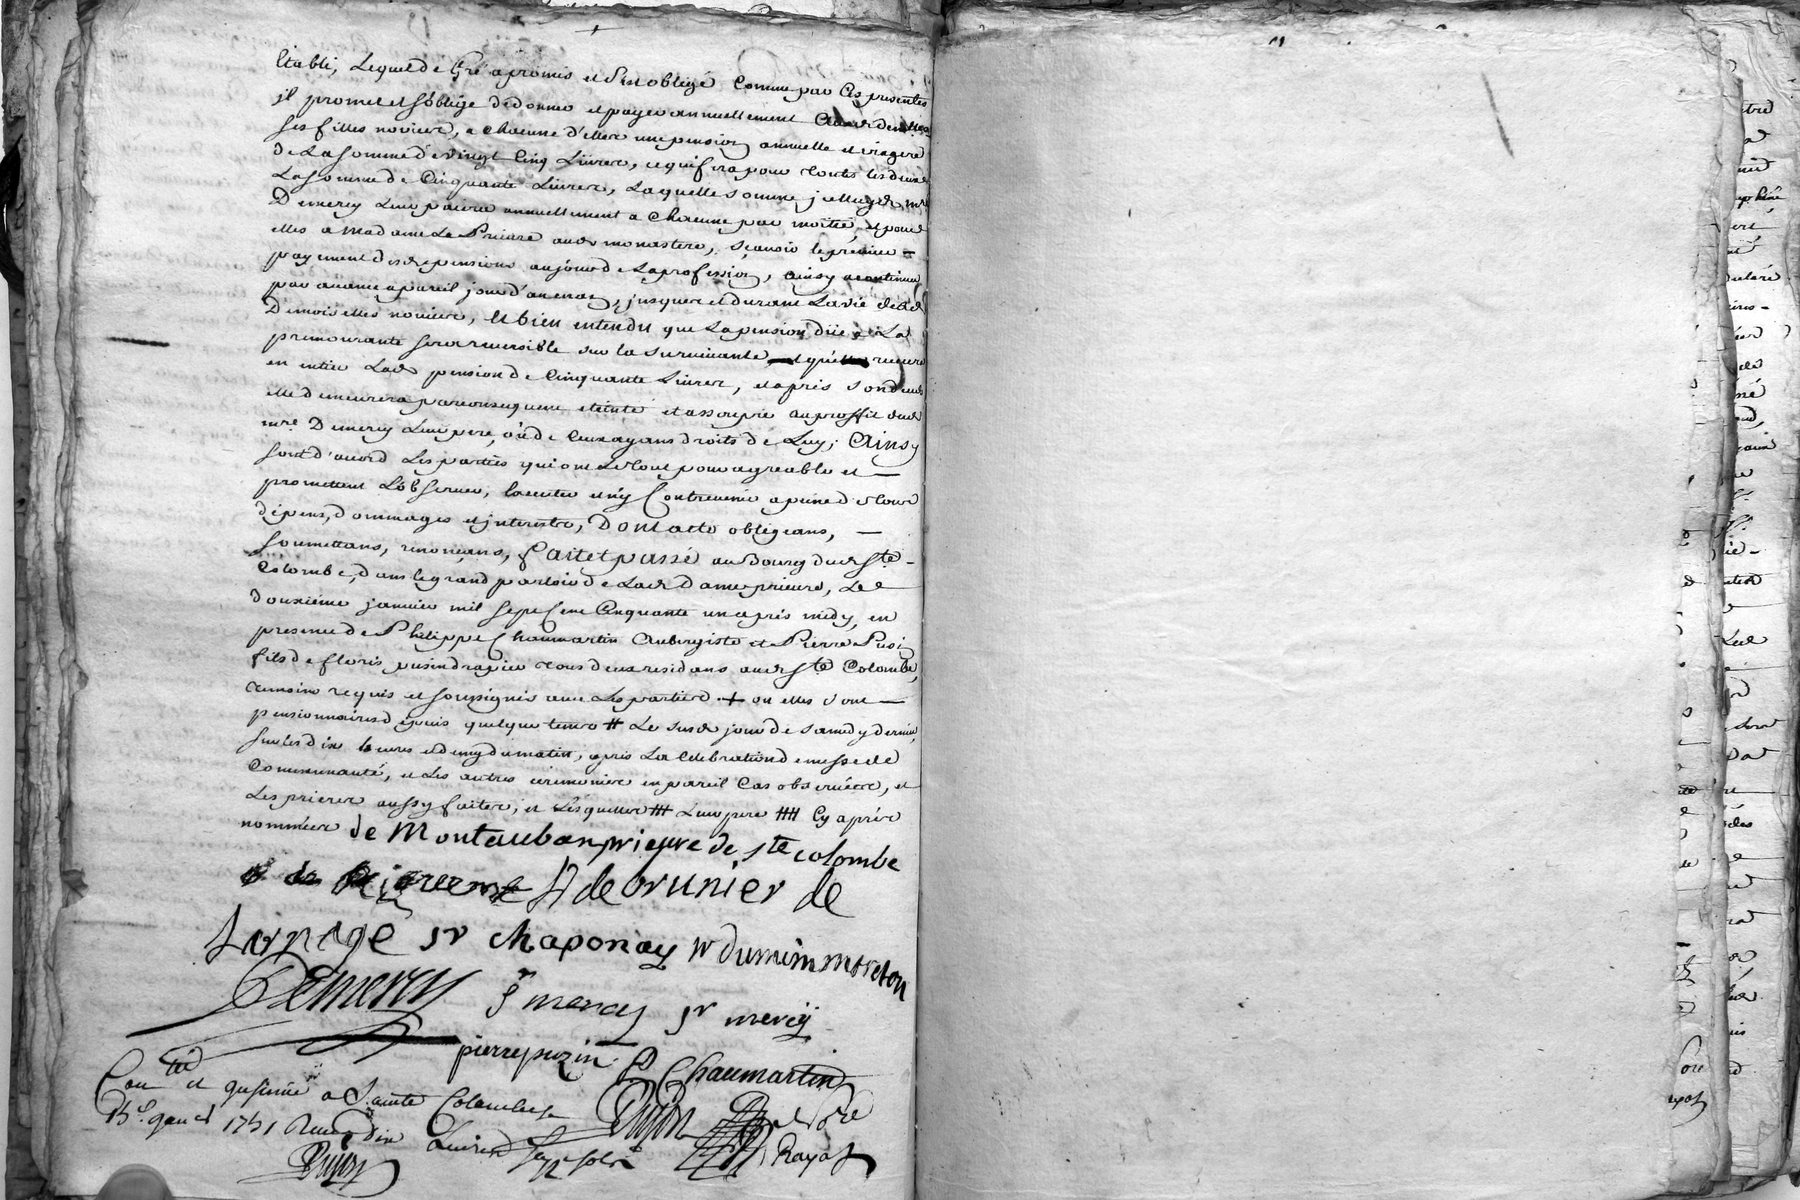 Etabli, Lequel de Gré a promis et s'est obligé Comme par Ces presentes
jl promet et s'oblige de donner et payer annuellement
ses filles novices, a Chacune d'elles une pension annuelle et viagere
de La somme de vingt Cinq Livres, ce qui fera pour toutes les deux
La somme de Cinquante Livres, Laquelle somme jcelluy d. mre
Demercy Leur paiera annuellement a Chacune par moitié, et pour
elles a Madame La Prieure aud. monastere, sçavoir le premier =
payement desd. pensions au jour de La profession, ainsy a continuer
par avance a pareil jour d'année en , jusques et durant La vie desd.
Demoiselles novices, et bien entendu que La pension düe a La
premourante sera reversible sur la survivante et qu'elle
en entier Lad. pension de Cinquante Livres, et après son deces
elle demeurera par consequent eteinte et assoupie au proffit dud.
mre. Demercy Leur pere, ou de Ceux ayans droits de Luy; Ainsy
sont d'acord Les parties qui ont Le tout pour agreable et —
promettent L'observer, et n'y Contrevenir a peine de tous
dépens, dommages et jnterestz, Dont acte obligeans, —
soumettans, renonçans, fait et passé au Bourg dud. Ste. -
Colombe, dans le grand parloir de Lad. Dame prieure, Le
douzième janvier mil sept Cent Cinquante un après midy, en
presence de Philippe Chaumartin Aubergiste et Pierre Pusin
fils de floris pusin drapier tous deux residans aud. Ste. Colombe,
temoins requis et soussignés avec Les parties + ou elles sont —
pensionnaires depuis quelque temps # Le susd. jour de samedy dernier,
sur les dix heures et demy du matin, après La Celebration de messe de
Communauté, et Les autres ceremonies en pareil Cas observées, et
Les prieres aussy faites; et Lesquelles ### Leur pere #### Cy après
nommées de Montauban prieure de ste colombe
de brunier de
Larnage sr chaponay
Demercy sr mercy sr mercij
pierre puzin P Chaumartin
Conlé et jnsinué a Sainte Colombe
13e. janer 1751 Reçu
Rayat